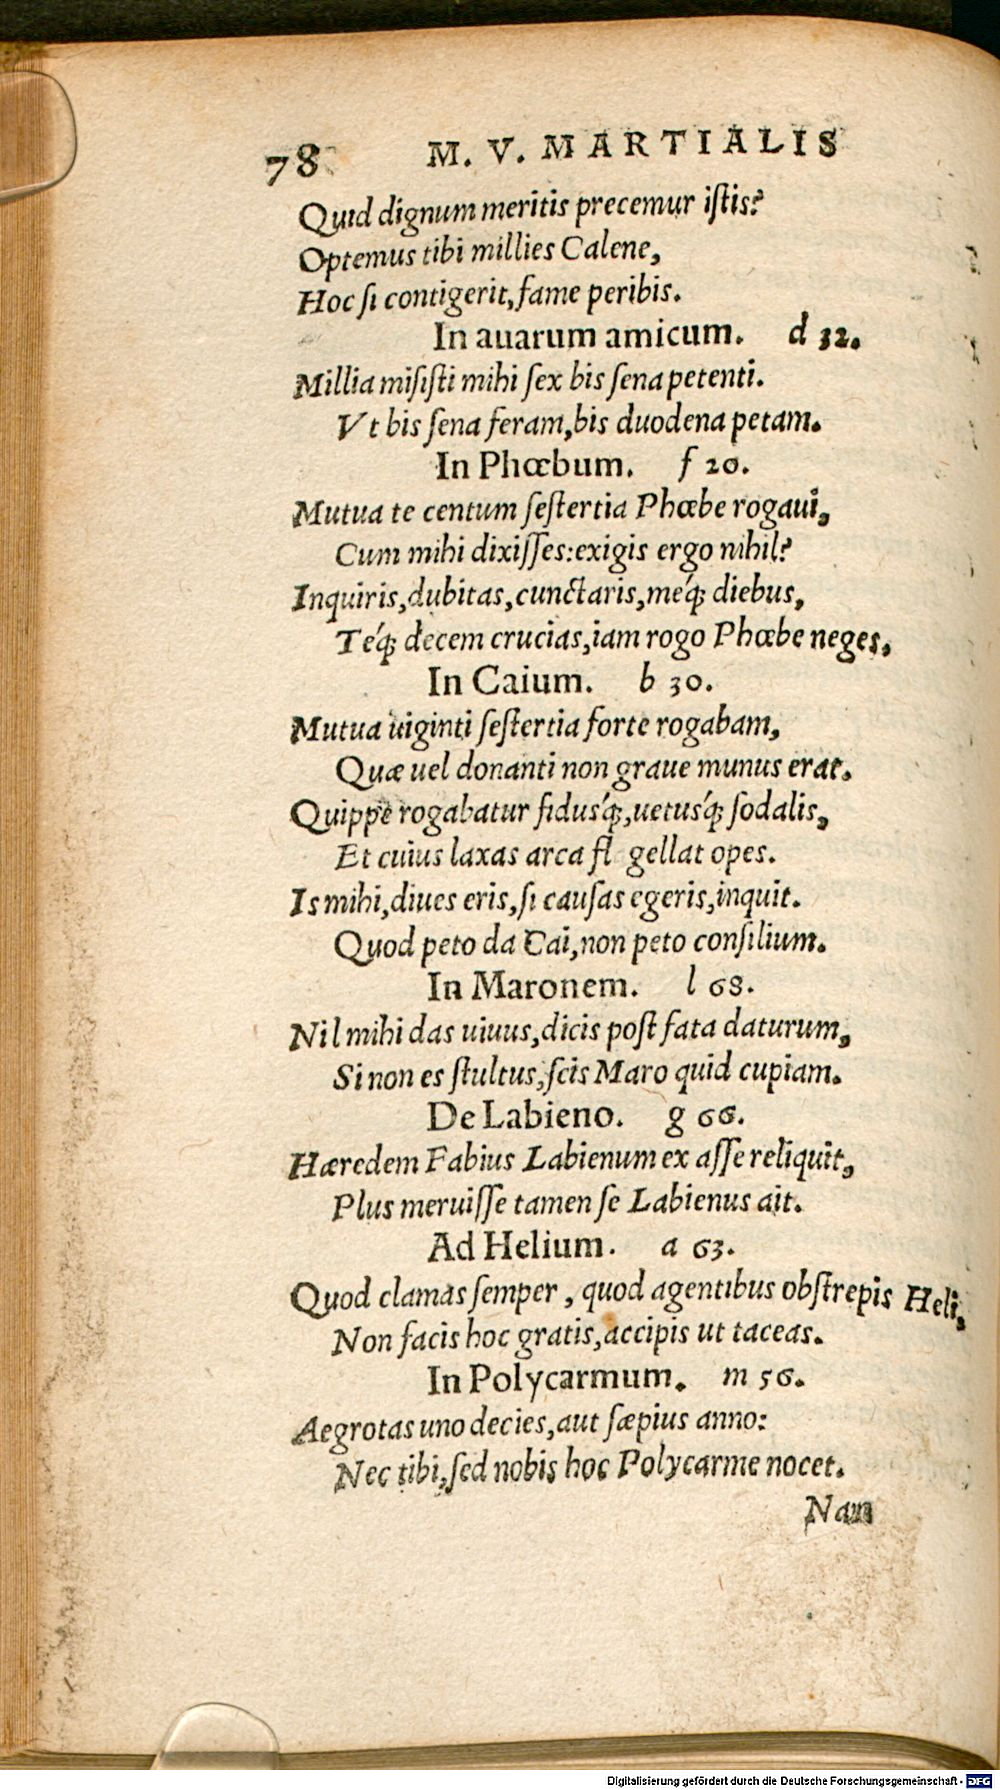 78 M. V. MARTIALIS
Quid dignum meritis precemur iſtis?
Optemus tibi millies Calene,
Hoc ſi contigerit, fame peribis.
In auarum amicum. d 32.
Millia miſiſti mihi ſex bis ſena petenti.
Vt bis ſena feram, bis duodena petam.
In Phœbum. f 20.
Mutua te centum ſeſtertia Phœbe rogaui,
Cum mihi dixiſſes: exigis ergo nihil?
Inquiris, dubitas, cunctaris, meq́ꝫ diebus,
Teq́ꝫ decem crucias, iam rogo Phœbe neges.
In Caium. b 30.
Mutua uiginti ſeſtertia forte rogabam,
Quæ uel donanti non graue munus erat.
Quippe rogabatur fidusq́ꝫ, uetusq́ꝫ ſodalis,
Et cuius laxas arca fl gellat opes.
Is mihi, diues eris, ſi cauſas egeris, inquit.
Quod peto da Cai, non peto conſilium.
In Maronem. l 68.
Nil mihi das uiuus, dicis poſt fata daturum,
Si non es ſtultus, ſcis Maro quid cupiam.
De Labieno. g 66.
Hæredem Fabius Labienum ex aſſe reliquit,
Plus meruiſſe tamen ſe Labienus ait.
Ad Helium. a 63.
Quod clamas ſemper, quod agentibus obſtrepis Heli,
Non facis hoc gratis, accipis ut taceas.
In Polycarmum. m 56.
Aegrotas uno decies, aut ſæpius anno:
Nec tibi, ſed nobis hoc Polycarme nocet.
Nam
Digitalisierung gefördert durch die Deutsche Forschungsgemeinschaft - DFG